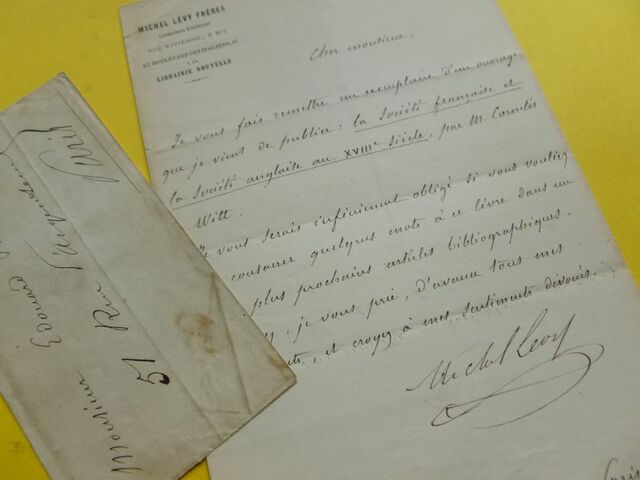 MICHEL LÉVY FRÈRES
LIBRAIRES ÉDITEURS
RUE VIVIENNE, 2 BIS
ET BOULEVARD DES ITALIENS, 15
A LA
LIBRAIRIE NOUVELLE
Cher monsieur.
Je vous fais remettre un exemplaire d'un ouvrage
que je viens de publier : la Société française et
la Société anglaise au XVIIIe Siècle, par M. Cornélis
Witt.
Je vous serais infiniment obligé si vous vouliez
consacrer quelques mots à ce livre dans un
plus prochains articles bibliographiques.
je vous prie, d'avance tous mes
et croyez à mes sentiments dévoués.
Michel Lévy
Paris
Monsieur Edouard
51 Rue